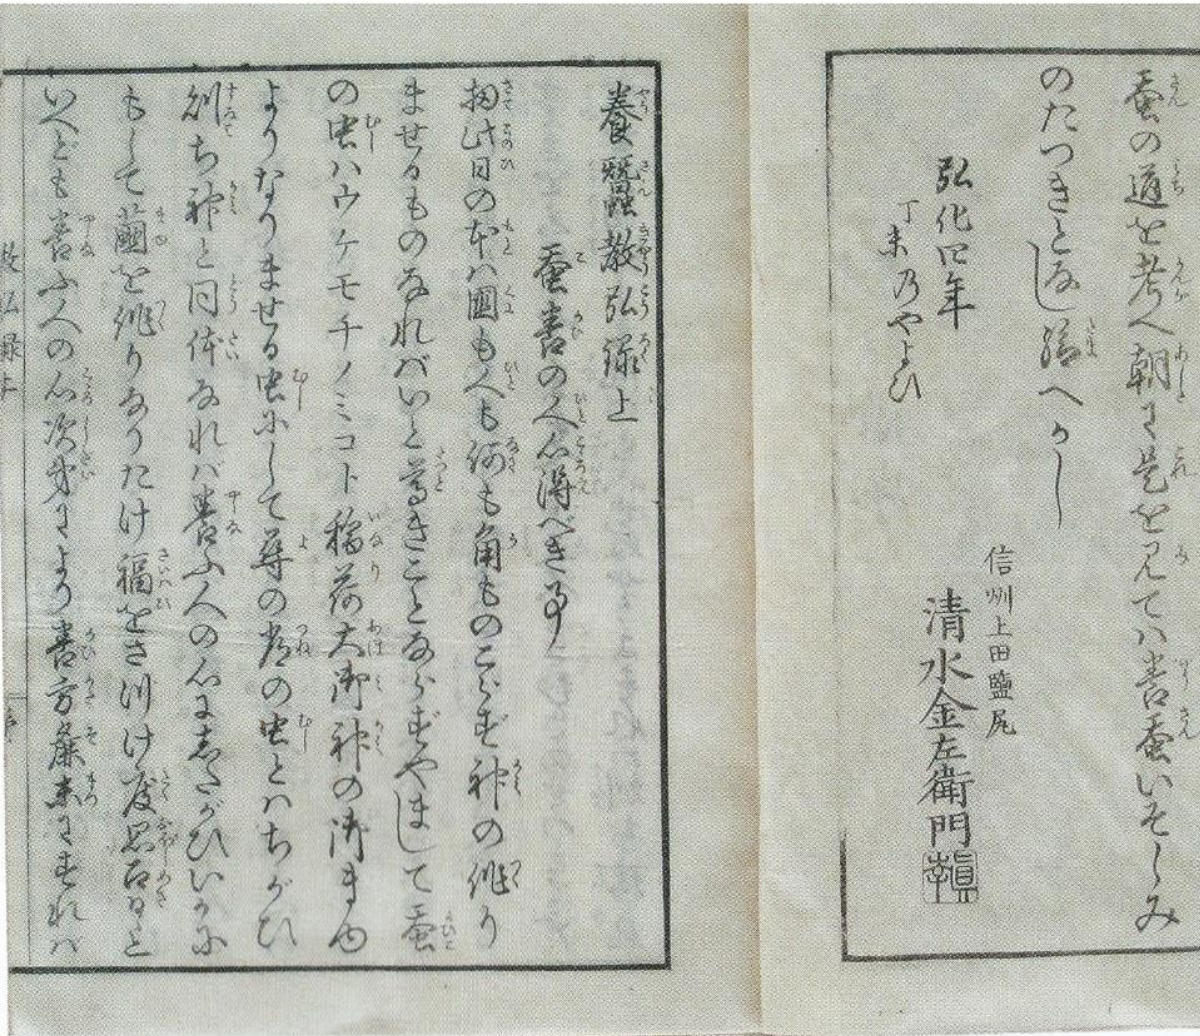 蚕の道を考へ朝に是を見てハ養蚕いそしみ
のたつきとなし給へかし
弘化四年
丁未乃やよひ
信州上田鹽尻
清水金左衛門
養蠶教弘録上
蚕養の人心得べき事
扨此日の本ハ國も人も何も角ものこらず神の作り
ませるものなれバいと尊きことならずやまして蚕
の虫ハウケモチノミコト稲荷大御神の御まゆ
よりなりませる虫にして尋の常の虫とハちがひ
則ち神と同体なれバ養ふ人の心にしたがひいかに
もして繭を作りありたけ福をさづけ度思召すと
いへども養ふ人の心次第により養方麁末にすれバ
教弘録上